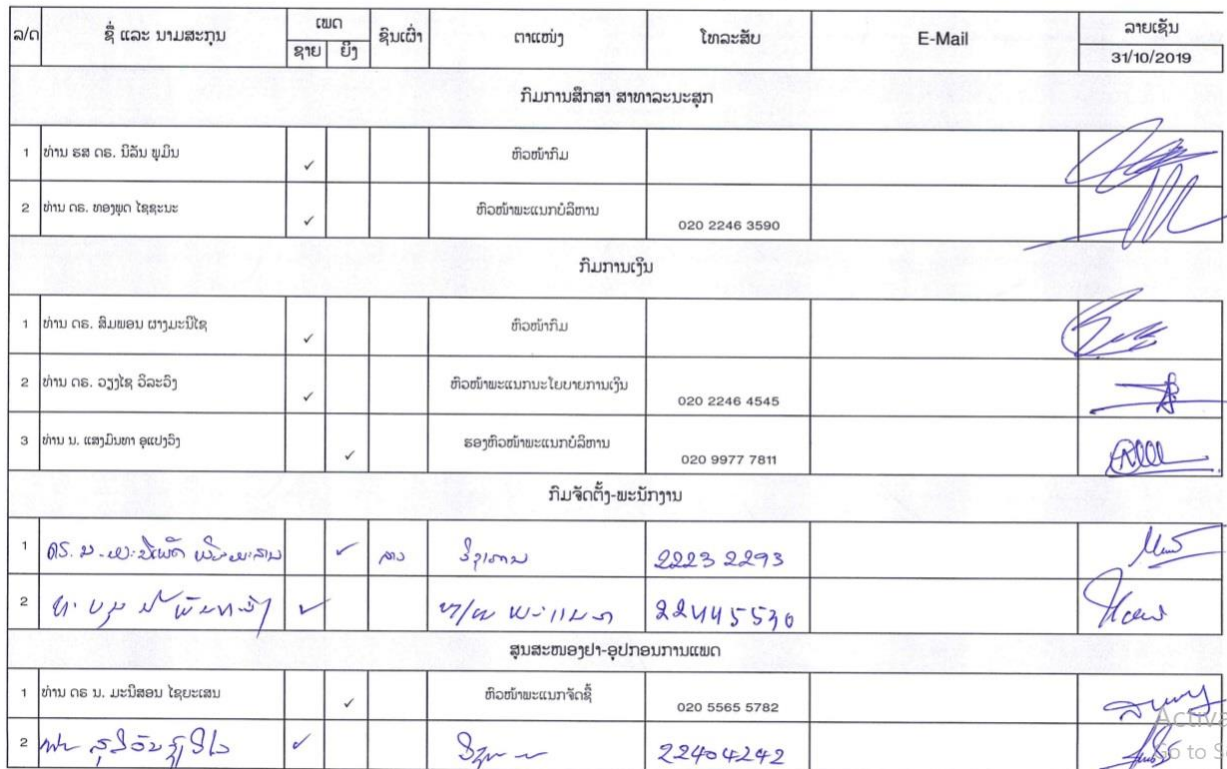 ລ/ດ ຊື່ ແລະ ນາມສະກຸນ ເພດ ຊົນເຜົ່າ ຕາແໜ່ງ ໂທລະສັບ E-Mail ລາຍເຊັນ
ຊາຍ ຍິງ 31/10/2019
ກົມການສຶກສາ ສາທາລະນະສຸກ
1 ທ່ານ ຮສ ດຣ. ນິລັນ ພູມິນ ✓ ຫົວໜ້າກົມ
2 ທ່ານ ດຣ. ທອງພຸດ ໄຊຊະນະ ✓ ຫົວໜ້າພະແນກບໍລິຫານ 020 2246 3590
ກົມການເງິນ
1 ທ່ານ ດຣ. ສົມພອນ ຜາງມະນີໄຊ ✓ ຫົວໜ້າກົມ
2 ທ່ານ ດຣ. ວຽງໄຊ ວິລະວົງ ✓ ຫົວໜ້າພະແນກນະໂຍບາຍການເງິນ 020 2246 4545
3 ທ່ານ ນ. ແສງມິນທາ ອຸແປງວົງ ✓ ຮອງຫົວໜ້າພະແນກບໍລິຫານ 020 9977 7811
ກົມຈັດຕັ້ງ-ພະນັກງານ
1 ດຣ. ນ. ✓ ລາວ ວິຊາການ 2223 2293
2 ທ. ✓ 22445530
ສູນສະໜອງຢາ-ອຸປກອນການແພດ
1 ທ່ານ ດຣ ນ. ມະນີສອນ ໄຊຍະເສນ ✓ ຫົວໜ້າພະແນກຈັດຊື້ 020 5565 5782
2 ✓ 22404242